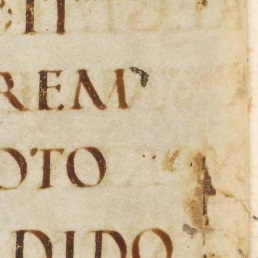 REM
OTO
DIDO